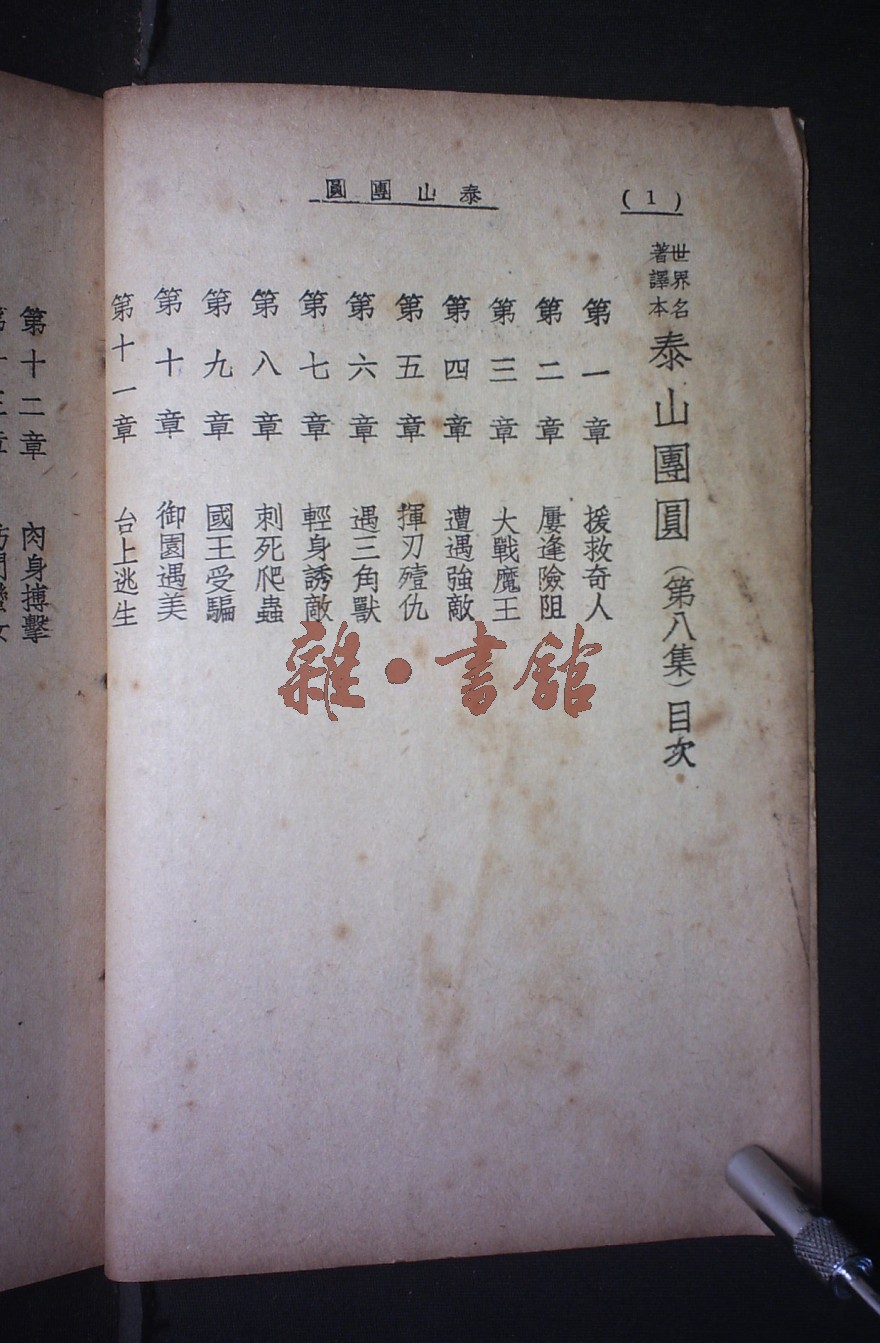 (1)
泰山團圓
世界名著譯本 泰山團圓(第八集)目次
第一章 援救奇人
第二章 屢逢險阻
第三章 大戰魔王
第四章 遭遇強敵
第五章 揮刃殪仇
第六章 遇三角獸
第七章 輕身誘敵
第八章 刺死爬蟲
第九章 國王受騙
第十章 御園遇美
第十一章 台上逃生
第十二章 肉身搏擊
雜·書館